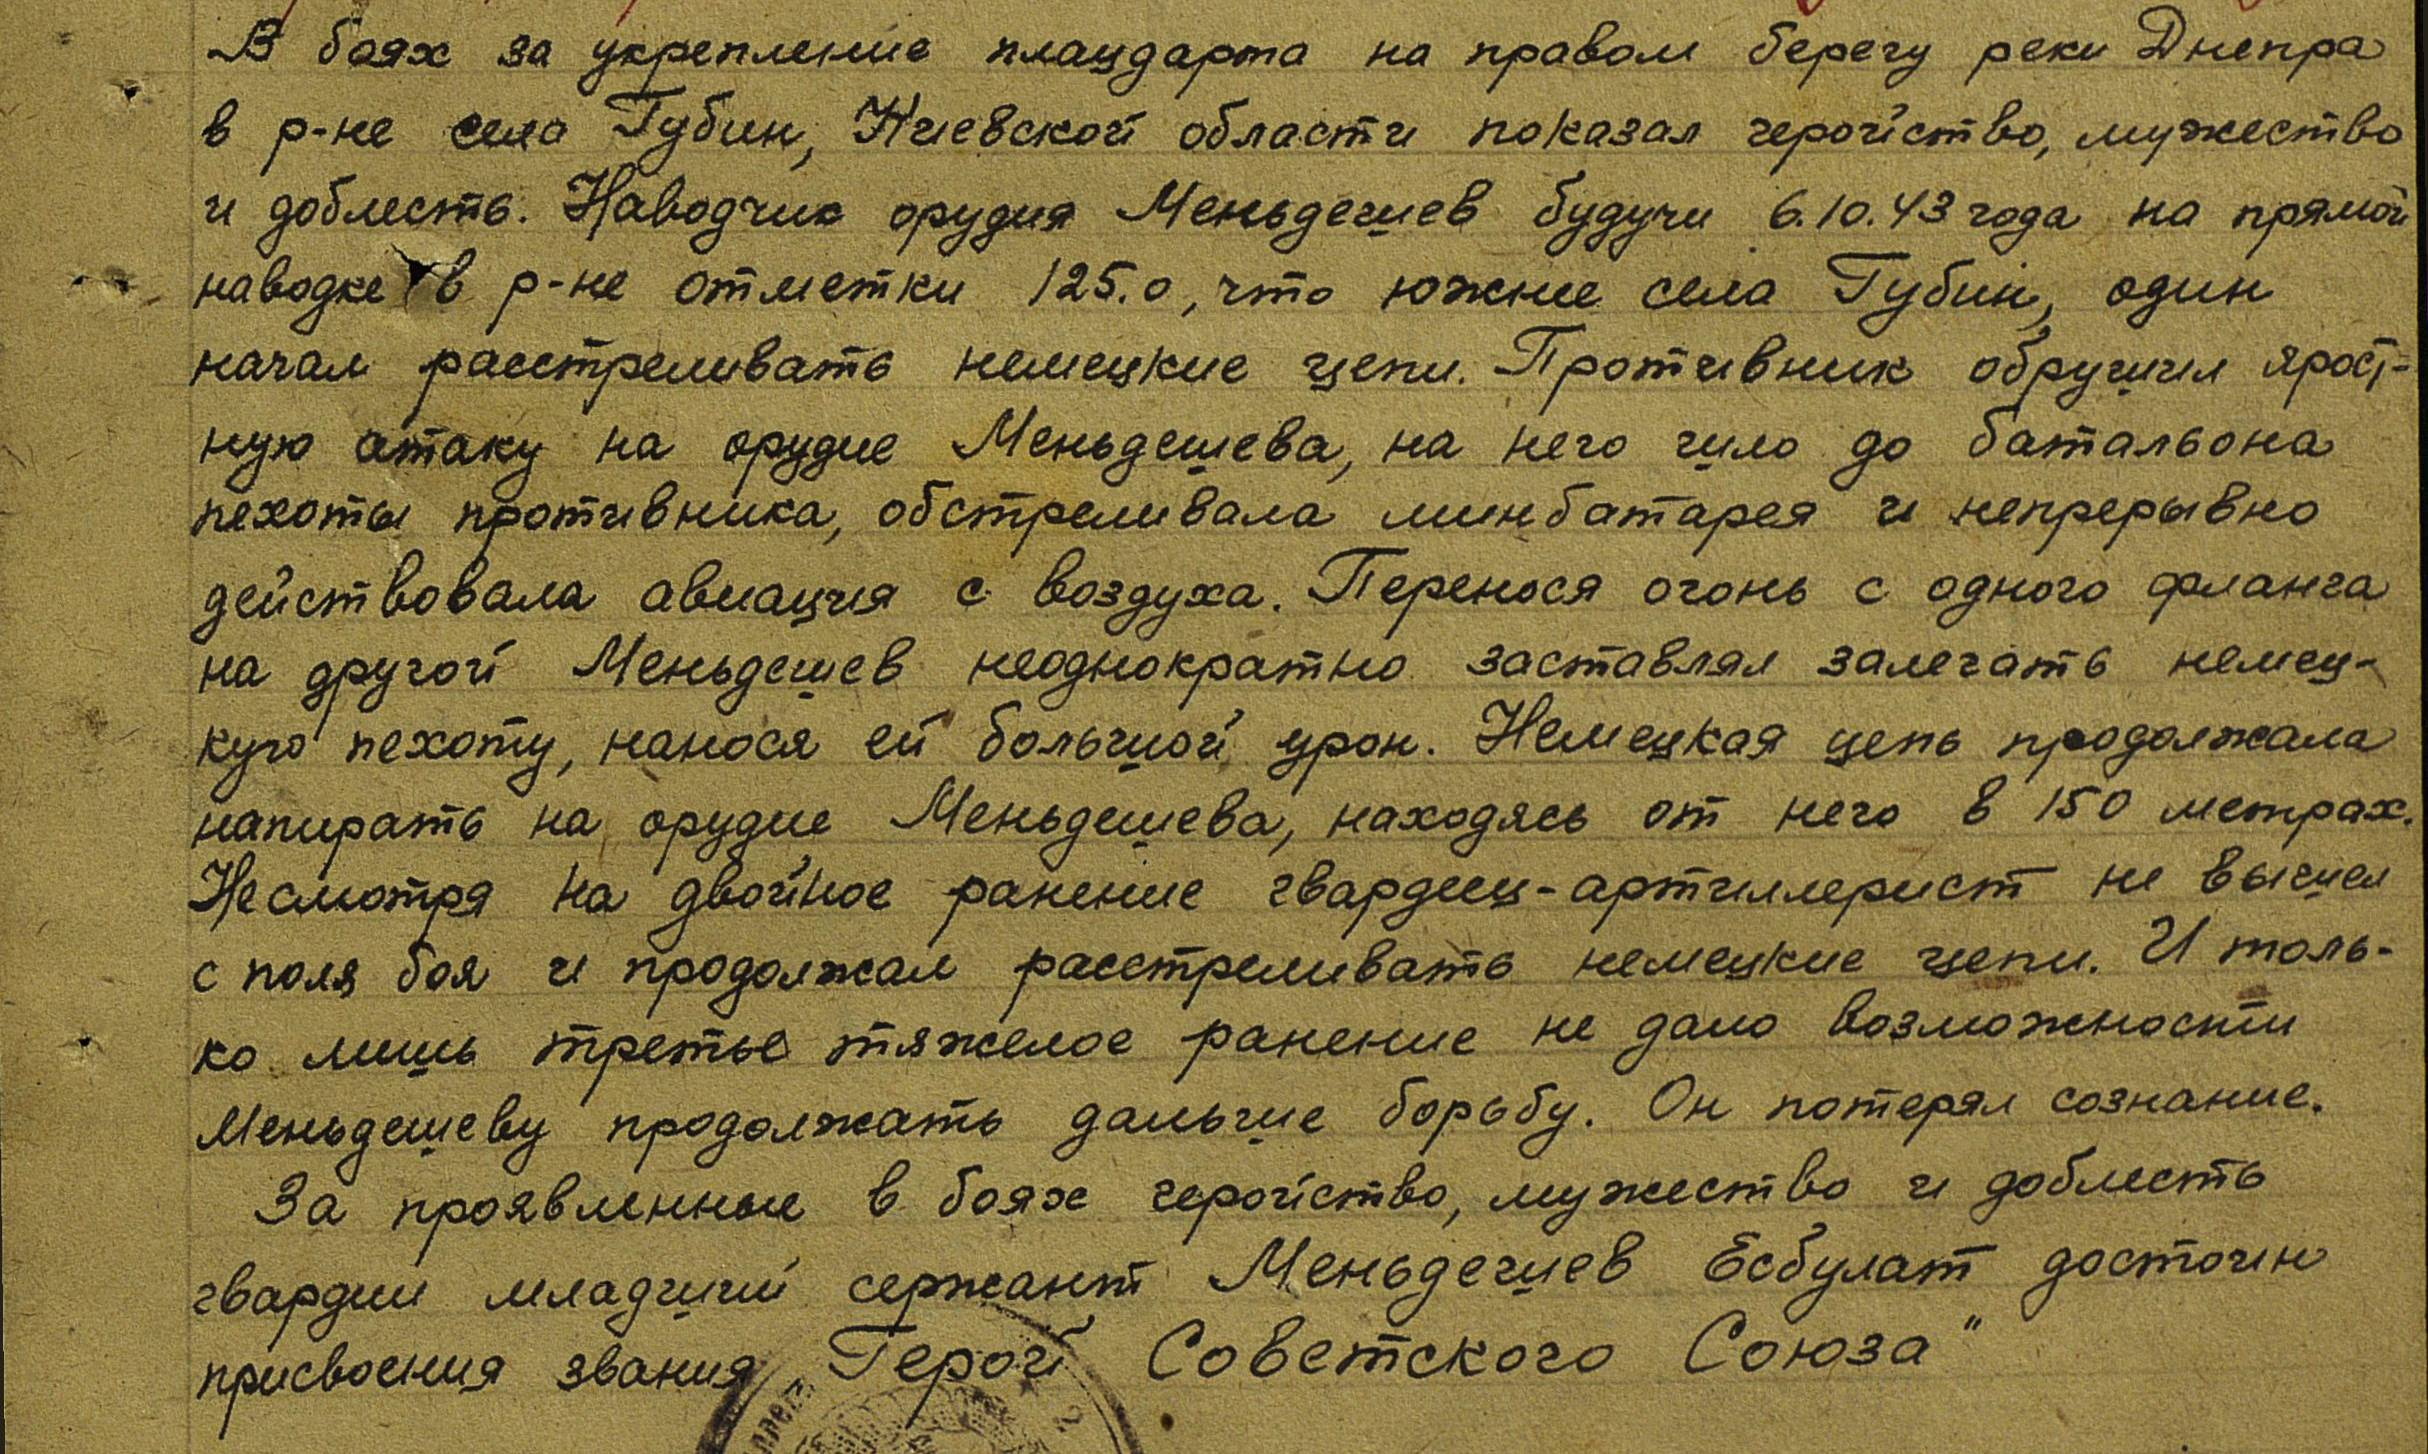 В боях за укрепление плацдарма на правом берегу реки Днепра
в р-не села Губин, Киевской области показал геройство, мужество
и доблесть. Наводчик орудия Меньдешев будучи 6.10.43 года на прямой
наводке в р-не отметки 125.0, что южнее села Губин, один
начал расстреливать немецкие цепи. Противник обрушил ярост-
ную атаку на орудие Меньдешева, на него шло до батальона
пехоты противника, обстреливала минбатарея и непрерывно
действовала авиация с воздуха. Перенося огонь с одного фланга
на другой Меньдешев неоднократно заставлял залегать немец-
кую пехоту, нанося ей большой урон. Немецкая цепь продолжала
напирать на орудие Меньдешева, находясь от него в 150 метрах.
Несмотря на двойное ранение гвардеец-артиллерист не вышел
с поля боя и продолжал расстреливать немецкие цепи. И толь-
ко лишь третье тяжелое ранение не дало возможности
Меньдешеву продолжать дальше борьбу. Он потерял сознание.
За проявленные в боях геройство, мужество и доблесть
гвардии младший сержант Меньдешев Есбулат достоин
присвоения звания „Герой Советского Союза"